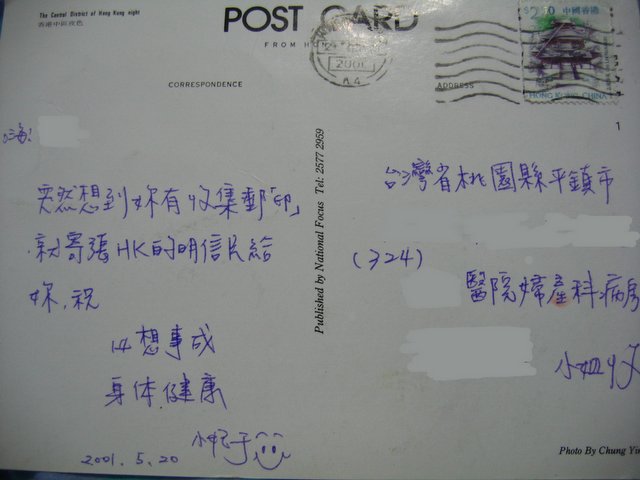 The Central District of Hong Kong night
香港中區夜色
POST CARD
FROM HONG
CORRESPONDENCE
ADDRESS
2001
$2.50 中國香港
HONG KONG, CHINA
1
嗨!
突然想到妳有收集郵「印」
就寄張HK的明信片給
妳,祝
心想事成
身体健康
2001. 5. 20
Published by National Focus Tel: 2577 2959
台灣省桃園縣平鎮市
(324)
醫院婦產科病房
小姐收
Photo By Chung Yi